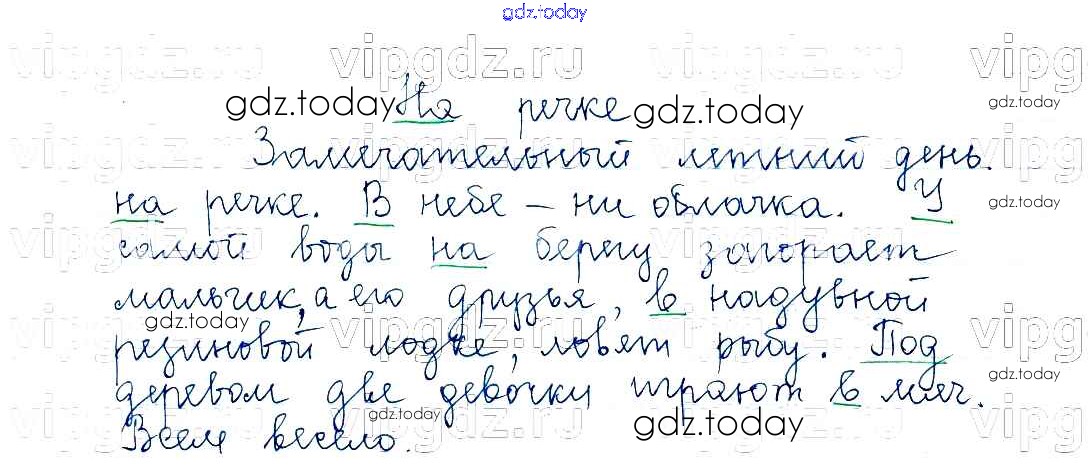 gdz.today
vipgdz.ru vipgdz.ru vipgdz.ru
gdz.today На речке gdz.today gdz.today
Замечательный летний день
на речке. В небе – ни облачка. У gdz.today
самой воды на берегу загорает
мальчик, а его друзья, в надувной
gdz.today
резиновой лодке, ловят рыбу. Под
деревом две девочки играют в мяч. gdz.today
gdz.today gdz.today
Всем весело.